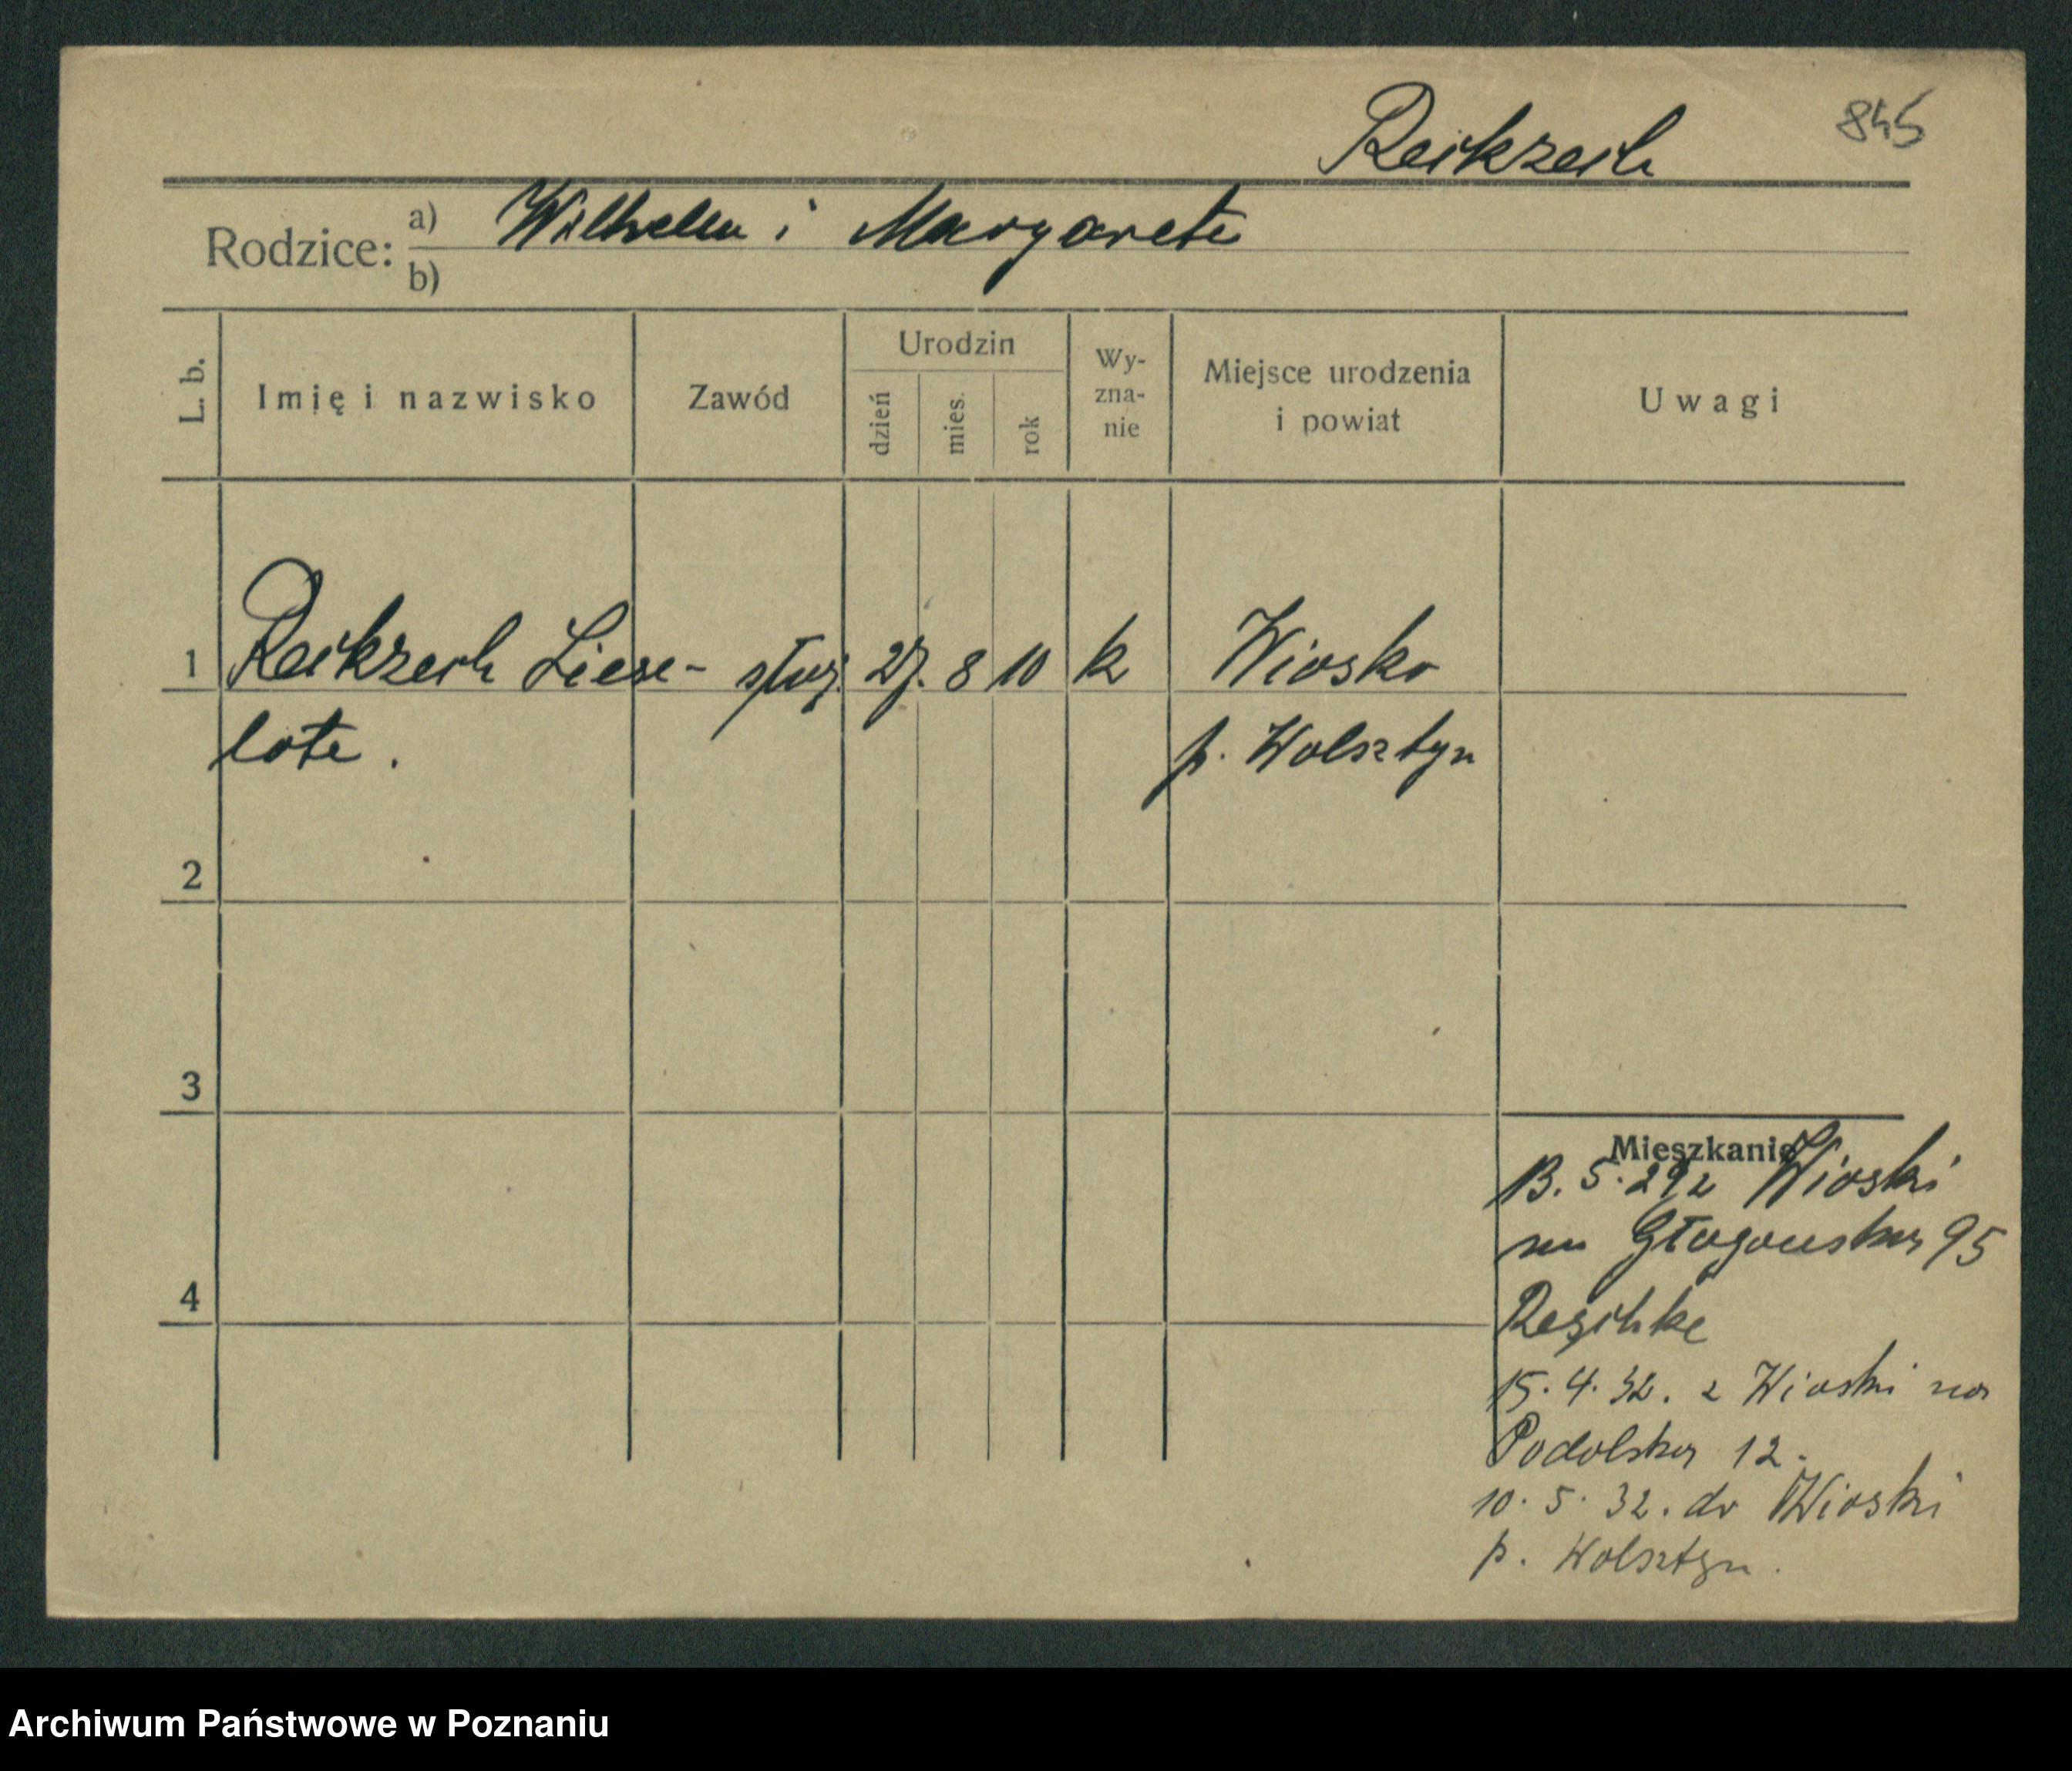 845
Reikzerh
Rodzice: a) Wilhelm i Margarete
b)
L. b.
Imię i nazwisko
Zawód
Urodzin
dzień
mies.
rok
Wy-
zna-
nie
Miejsce urodzenia
i powiat
Uwagi
1 Reikzerh Liese- służ. 27. 8 10 k Wiosko
lote. p. Wolsztyn
2
3
4
Mieszkanie
13. 5. 29 z Wioski
na Głogowska 95
15. 4. 32. z Wioski na
Podolska 12.
10. 5. 32. do Wioski
p. Wolsztyn.
Archiwum Państwowe w Poznaniu